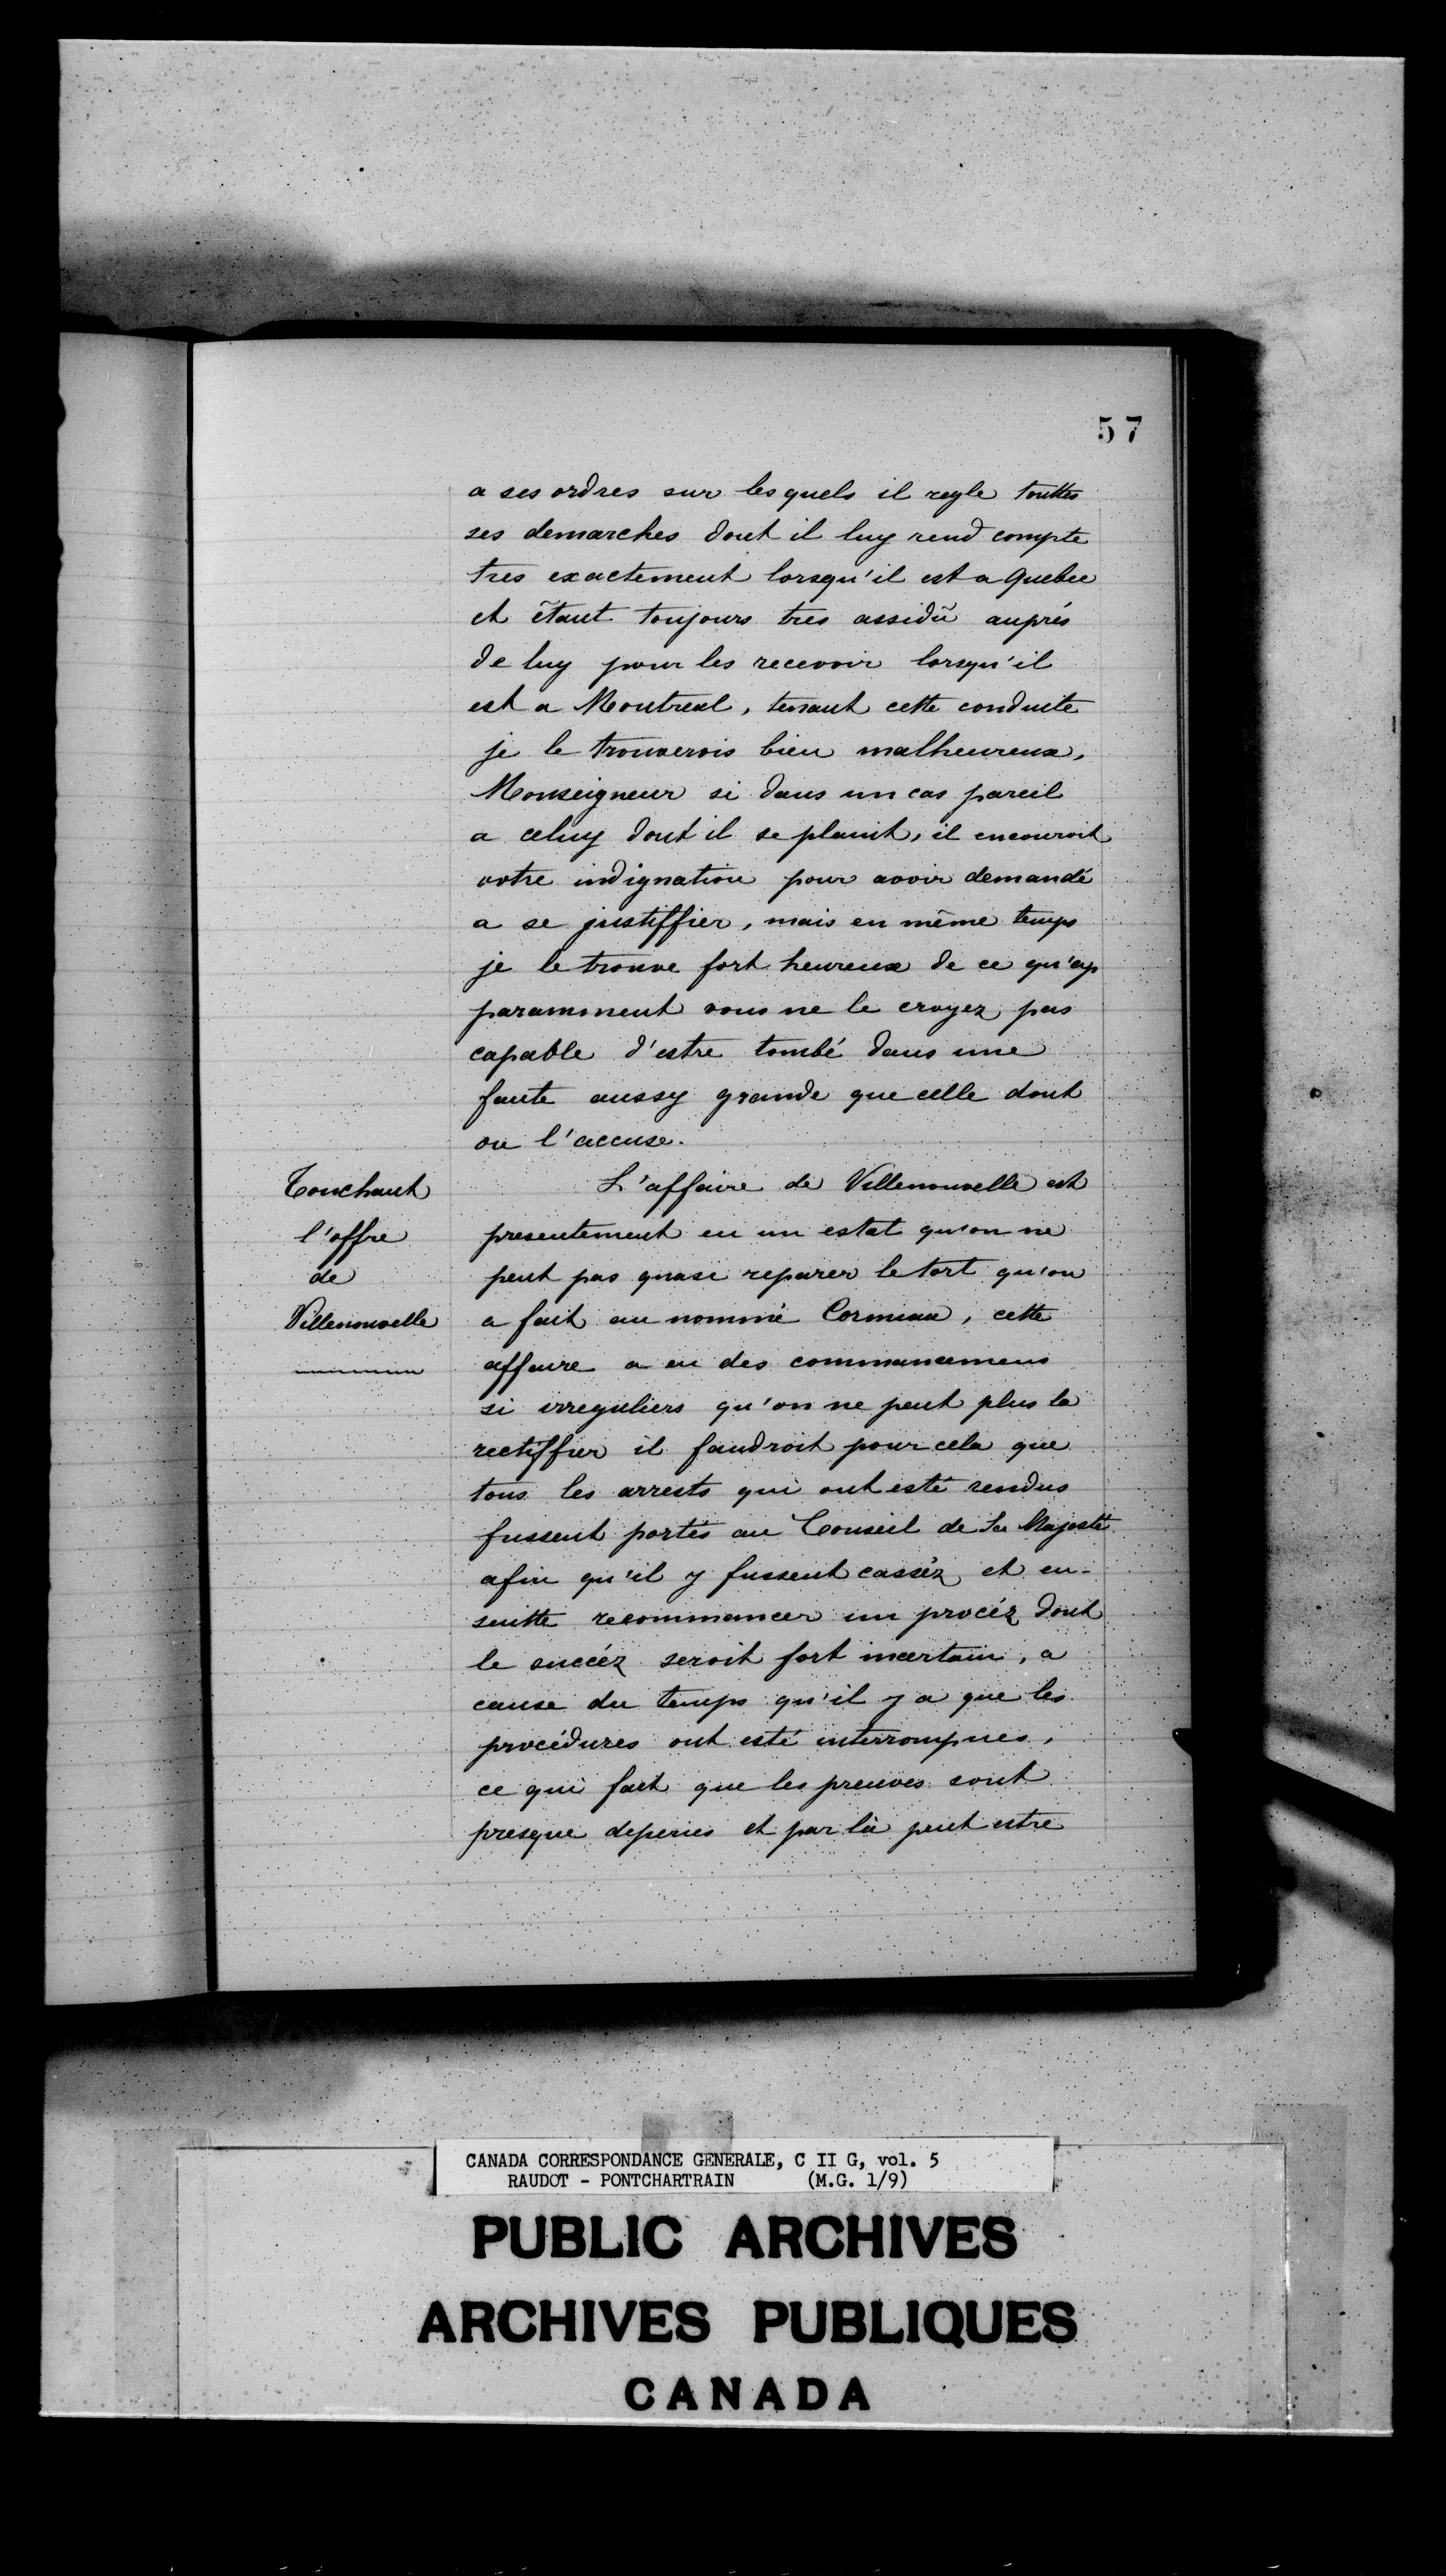 57
a ses ordres sur lesquels il regle touttes
ses demarches dont il luy rend compte
tres exactement lorsqu'il est a Quebec
et étant toujours tres assidû auprés
de luy pour les recevoir lorsqu'il
est a Montreal, tenant cette conduite
je le trouverois bien malheureux,
Monseigneur si dans un cas pareil
a celuy dont il se plaint, il encouroit
votre indignation pour avoir demandé
a se justiffier, mais en même temps
je le trouve fort heureux de ce qu'ap
paramment vous ne le croyez pas
capable d'estre tombé dans une
faute aussy grande que celle dont
on l'accuse.
Touchant
l'offre
de
Villenouvelle
L'affaire de Villenouvelle est
presentement en un estat qu'on ne
peut pas quasi reparer le tort qu'on
a fait au nommé Cormeau, cette
affaire a eu des commancemens
si irreguliers qu'on ne peut plus la
rectiffier il faudroit pour cela que
tous les arrests qui ont esté rendus
fussent portés au Conseil de Sa Majesté
afin qu'il y fussent casséz et en-
suitte recommancer un procéz dont
le succéz seroit fort incertain, a
cause du temps qu'il y a que les
procédures ont esté interrompues,
ce qui fait que les preuves sont
presque deperies et par là peut estre
CANADA CORRESPONDANCE GENERALE, C II G, vol. 5
RAUDOT - PONTCHARTRAIN (M.G. 1/9)
PUBLIC ARCHIVES
ARCHIVES PUBLIQUES
CANADA